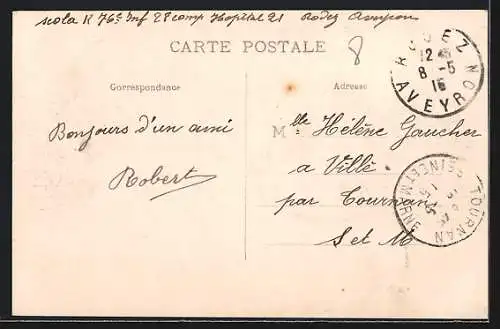 scola R 76e Inf 28 comp Hopital 21 Rodez Aveyron
CARTE POSTALE
8
RODEZ
12
8 -5
15
AVEYRON
Correspondance
Adresse
Bonjours d'un ami
Robert
Mlle Hélène Gaucher
a Villé
par Tournan
S et M
TOURNAN
SEINE ET MARNE